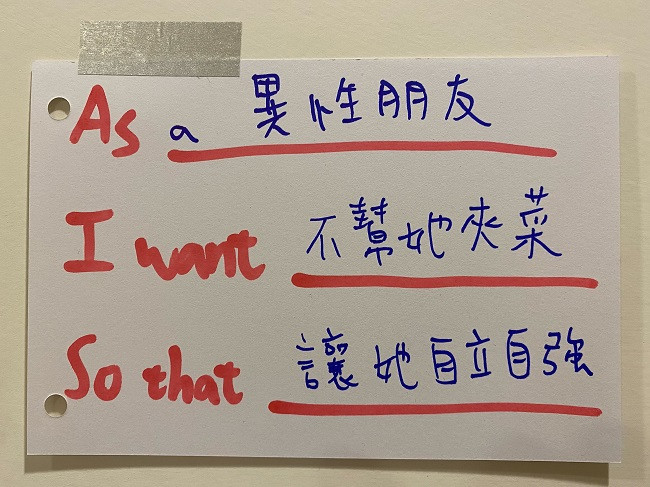 As a 異性朋友
I want 不幫她夾菜
So that 讓她自立自強